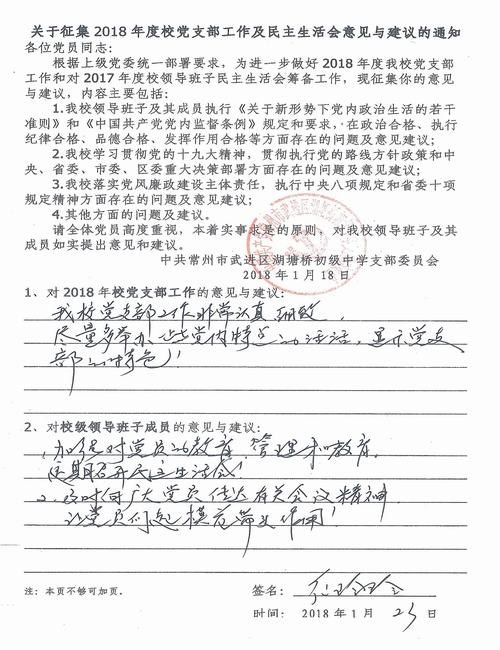 关于征集 2018 年度校党支部工作及民主生活会意见与建议的通知
各位党员同志：
根据上级党委统一部署要求，为进一步做好 2018 年度我校党支部
工作和对 2017 年度校领导班子民主生活会筹备工作，现征集你的意见
与建议，内容主要包括：
1.我校领导班子及其成员执行《关于新形势下党内政治生活的若干
准则》和《中国共产党党内监督条例》规定和要求，在政治合格、执行
纪律合格、品德合格、发挥作用合格等方面存在的问题及意见建议；
2.我校学习贯彻党的十九大精神，贯彻执行党的路线方针政策和中
央、省委、市委、区委重大决策部署方面存在的问题及意见建议；
3.我校落实党风廉政建设主体责任，执行中央八项规定和省委十项
规定精神方面存在的问题及意见建议；
4.其他方面的问题及建议。
请全体党员高度重视，本着实事求是的原则，对我校领导班子及其
成员如实提出意见和建议。
中共常州市武进区湖塘桥初级中学支部委员会
2018 年 1 月 18 日
1、对 2018 年校党支部工作的意见与建议：
我校党支部工作非常认真细致，
尽量多举办些党内特色的活动，显示党支
部的特色！
2、对校级领导班子成员的意见与建议：
1、加强对党员的教育、管理和教育，
定期召开民主生活会！
2、及时向广大党员传达有关会议精神，
让党员们起模范带头作用！
注：本页不够可加页。
签名：
时间： 2018 年 1 月 23 日